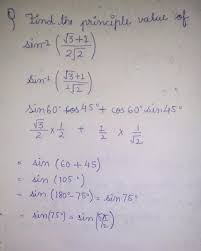 Q Find the principle value of
sin⁻¹ (√3+1 / 2√2)
sin⁻¹ (√3+1 / 2√2)
sin60° cos45° + cos60° sin45°
√3/2 × 1/2 + 1/2 × 1/√2
= sin (60+45)
= sin (105°)
= sin(180°-75°) = sin75°
= sin(75°) = sin(5π/12)